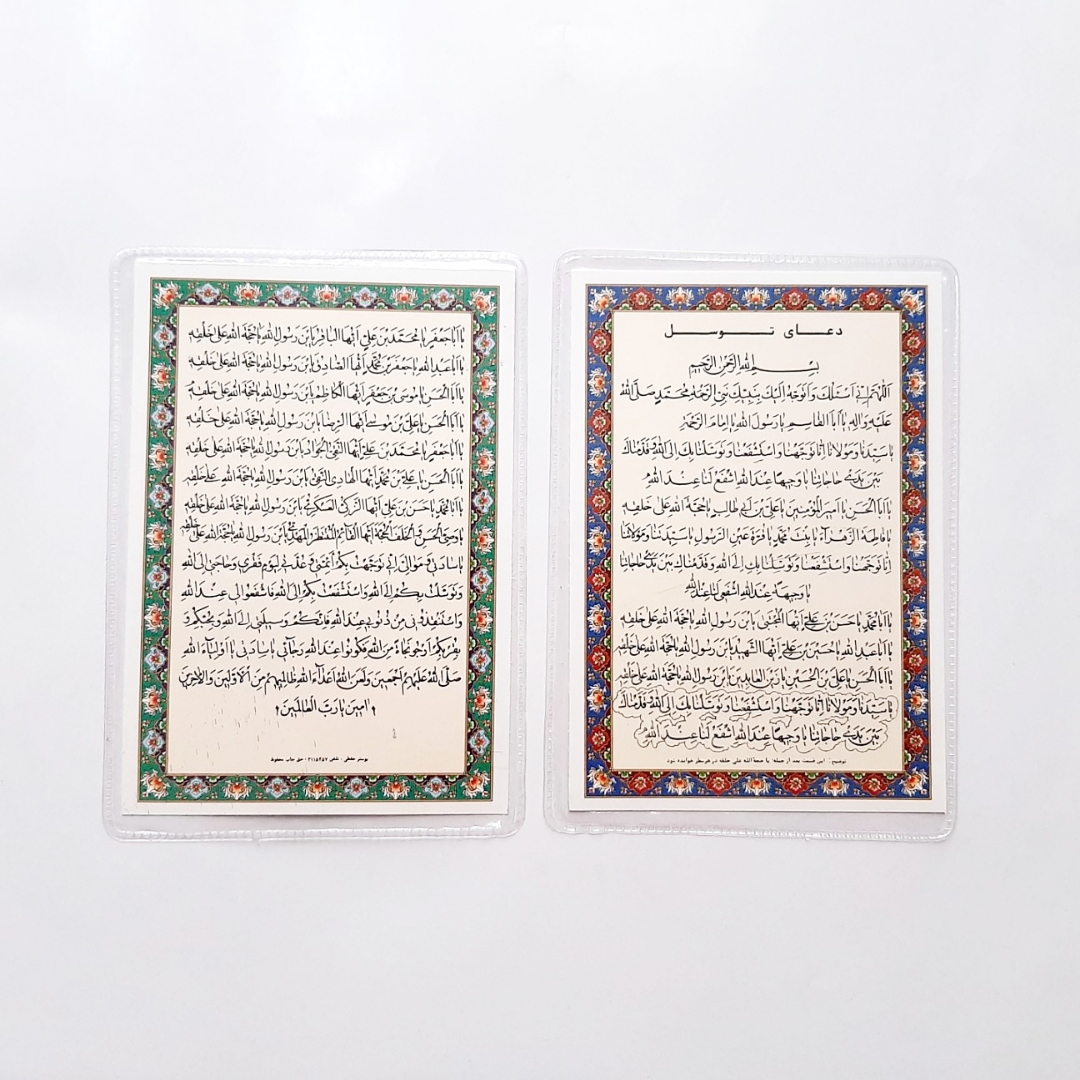 دعای توسل
بِسْمِ اللهِ الرَّحْمٰنِ الرَّحِیمِ
اَللّٰهُمَّ اِنّی اَسْئَلُكَ وَ اَتَوَجَّهُ اِلَیْكَ بِنَبِیِّكَ نَبِیِّ الرَّحْمَةِ مُحَمَّدٍ صَلَّی اللهُ
عَلَیْهِ وَ الِهِ یا اَبَا الْقاسِمِ یا رَسُولَ اللهِ یا اِمامَ الرَّحْمَةِ
یا سَیِّدَنا وَ مَوْلانا اِنّا تَوَجَّهْنا وَ اسْتَشْفَعْنا وَ تَوَسَّلْنا بِكَ اِلَی اللهِ وَ قَدَّمْناكَ
بَیْنَ یَدَیْ حاجاتِنا یا وَجیهاً عِنْدَ اللهِ اِشْفَعْ لَنا عِنْدَ اللهِ
یا اَبَا الْحَسَنِ یا اَمیرَ الْمُؤْمِنینَ یا عَلِیَّ بْنَ اَبی طالِبٍ یا حُجَّةَ اللهِ عَلی خَلْقِهِ
یا فاطِمَةَ الزَّهْرآءُ یا بِنْتَ مُحَمَّدٍ یا قُرَّةَ عَیْنِ الرَّسُولِ یا سَیِّدَتَنا وَ مَوْلاتَنا
اِنّا تَوَجَّهْنا وَ اسْتَشْفَعْنا وَ تَوَسَّلْنا بِكِ اِلَی اللهِ وَ قَدَّمْناكِ بَیْنَ یَدَیْ حاجاتِنا
یا وَجیهَةً عِنْدَ اللهِ اِشْفَعی لَنا عِنْدَ اللهِ
یا اَبا مُحَمَّدٍ یا حَسَنَ بْنَ عَلِیٍّ اَیُّهَا الْمُجْتَبی یَابْنَ رَسُولِ اللهِ یا حُجَّةَ اللهِ عَلی خَلْقِهِ
یا اَبا عَبْدِ اللهِ یا حُسَیْنَ بْنَ عَلِیٍّ اَیُّهَا الشَّهیدُ یَابْنَ رَسُولِ اللهِ یا حُجَّةَ اللهِ عَلی خَلْقِهِ
یا اَبَا الْحَسَنِ یا عَلِیَّ بْنَ الْحُسَیْنِ یا زَیْنَ الْعابِدینَ یَابْنَ رَسُولِ اللهِ یا حُجَّةَ اللهِ عَلی خَلْقِهِ
یا سَیِّدَنا وَ مَوْلانا اِنّا تَوَجَّهْنا وَ اسْتَشْفَعْنا وَ تَوَسَّلْنا بِكَ اِلَی اللهِ وَ قَدَّمْناكَ
بَیْنَ یَدَیْ حاجاتِنا یا وَجیهاً عِنْدَ اللهِ اِشْفَعْ لَنا عِنْدَ اللهِ
توضیح : این قسمت بعد از جمله: یا حجةالله علی خلقه در هر سطر خوانده شود
یا اَبا جَعْفَرٍ یا مُحَمَّدَ بْنَ عَلِیٍّ اَیُّهَا الْباقِرُ یَابْنَ رَسُولِ اللهِ یا حُجَّةَ اللهِ عَلی خَلْقِهِ
یا اَبا عَبْدِ اللهِ یا جَعْفَرَ بْنَ مُحَمَّدٍ اَیُّهَا الصّادِقُ یَابْنَ رَسُولِ اللهِ یا حُجَّةَ اللهِ عَلی خَلْقِهِ
یا اَبَا الْحَسَنِ یا مُوسَی بْنَ جَعْفَرٍ اَیُّهَا الْكاظِمُ یَابْنَ رَسُولِ اللهِ یا حُجَّةَ اللهِ عَلی خَلْقِهِ
یا اَبَا الْحَسَنِ یا عَلِیَّ بْنَ مُوسی اَیُّهَا الرِّضا یَابْنَ رَسُولِ اللهِ یا حُجَّةَ اللهِ عَلی خَلْقِهِ
یا اَبا جَعْفَرٍ یا مُحَمَّدَ بْنَ عَلِیٍّ اَیُّهَا التَّقِیُّ الْجَوادُ یَابْنَ رَسُولِ اللهِ یا حُجَّةَ اللهِ عَلی خَلْقِهِ
یا اَبَا الْحَسَنِ یا عَلِیَّ بْنَ مُحَمَّدٍ اَیُّهَا الْهادِی النَّقِیُّ یَابْنَ رَسُولِ اللهِ یا حُجَّةَ اللهِ عَلی خَلْقِهِ
یا اَبا مُحَمَّدٍ یا حَسَنَ بْنَ عَلِیٍّ اَیُّهَا الزَّكِیُّ الْعَسْكَرِیُّ یَابْنَ رَسُولِ اللهِ یا حُجَّةَ اللهِ عَلی خَلْقِهِ
یا وَصِیَّ الْحَسَنِ وَ الْخَلَفَ الْحُجَّةَ اَیُّهَا الْقآئِمُ الْمُنْتَظَرُ الْمَهْدِیُّ یَابْنَ رَسُولِ اللهِ یا حُجَّةَ اللهِ عَلی خَلْقِهِ
یا سادَتی وَ مَوالِیَّ اِنّی تَوَجَّهْتُ بِكُمْ اَئِمَّتی وَ عُدَّتی لِیَوْمِ فَقْری وَ حاجَتی اِلَی اللهِ
وَ تَوَسَّلْتُ بِكُمْ اِلَی اللهِ وَ اسْتَشْفَعْتُ بِكُمْ اِلَی اللهِ فَاشْفَعُوا لی عِنْدَ اللهِ
وَ اسْتَنْقِذُونی مِنْ ذُنُوبی عِنْدَ اللهِ فَاِنَّكُمْ وَسیلَتی اِلَی اللهِ وَ بِحُبِّكُمْ وَ
بِقُرْبِكُمْ اَرْجُو نَجاةً مِنَ اللهِ فَكُونُوا عِنْدَ اللهِ رَجآئی یا سادَتی یا اَوْلِیآءَ اللهِ
صَلَّی اللهُ عَلَیْهِمْ اَجْمَعینَ وَ لَعَنَ اللهُ اَعْدآءَ اللهِ ظالِمیهِمْ مِنَ الْاَوَّلینَ وَ الْاخِرینَ
امینَ یا رَبَّ الْعالَمینَ